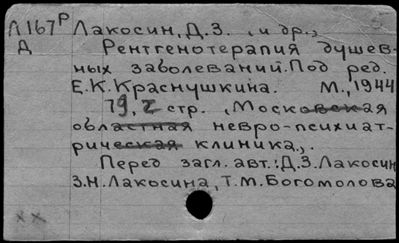 Л167Р Лакосин, Д.З. , и др.,
Д Рентгенотерапия душев-
ных заболеваний. Под ред.
Е.К. Краснушкина. М., 1944
79, 2 стр. , Московская
областная невро-психиат-
рическая клиника.,.
Перед загл. авт.: Д.З. Лакосин
З.Н. Лакосина, Т.М. Богомолова